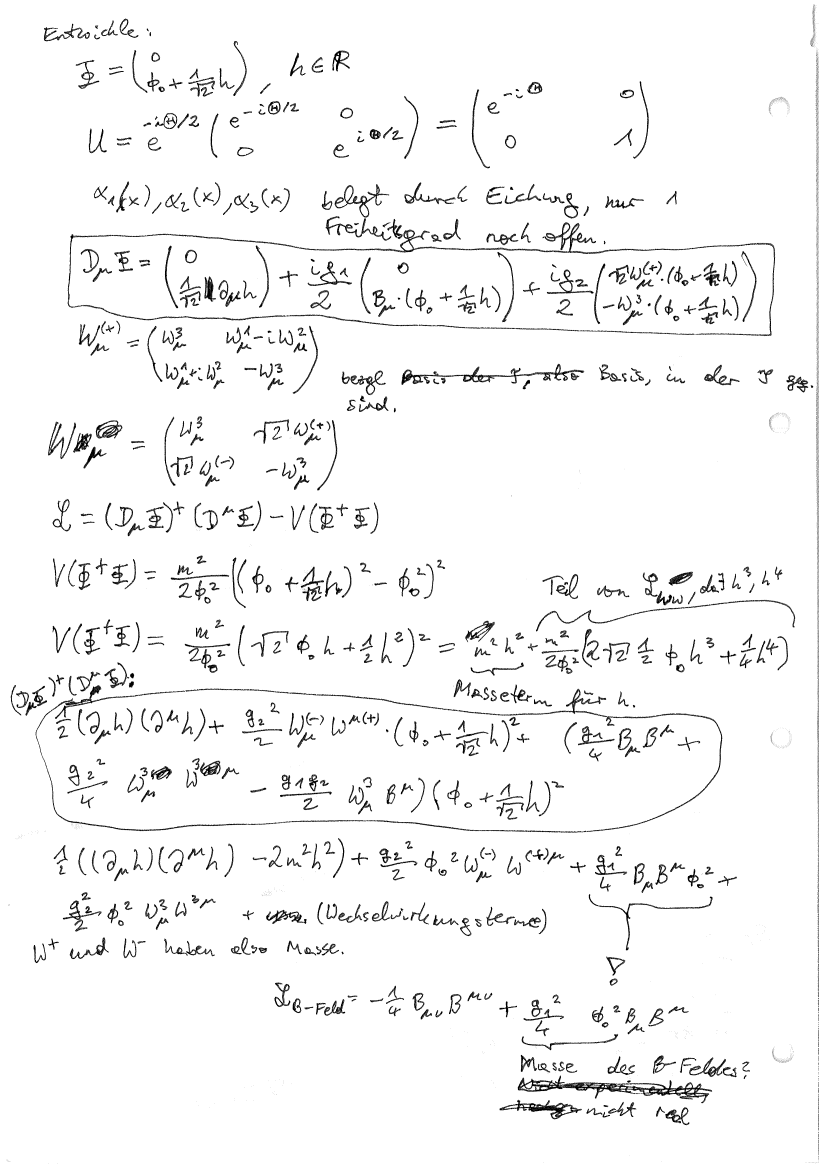 Entwickle:
Φ = (0 ; ϕ₀ + 1/√2 h), h ∈ ℝ
U = e^{-iΘ/2} (e^{-iΘ/2} 0 ; 0 e^{iΘ/2}) = (e^{-iΘ} 0 ; 0 1)
α₁(x), α₂(x), α₃(x) belegt durch Eichung, nur 1
Freiheitsgrad noch offen.
D_μ Φ = (0 ; 1/√2 ∂_μ h) + ig₁/2 (0 ; B_μ·(ϕ₀ + 1/√2 h)) + ig₂/2 (√2 W_μ^{(+)}·(ϕ₀ + 1/√2 h) ; -W_μ^3·(ϕ₀ + 1/√2 h))
W_μ^{(+)} = (W_μ^3 W_μ^1 - iW_μ^2 ; W_μ^1 + iW_μ^2 -W_μ^3)
bezgl Basis, in der J geg.
sind.
W_μ = (W_μ^3 √2 W_μ^{(+)} ; √2 W_μ^{(-)} -W_μ^3)
ℒ = (D_μ Φ)⁺ (D^μ Φ) - V(Φ⁺ Φ)
V(Φ⁺ Φ) = m²/2ϕ₀² ((ϕ₀ + 1/√2 h)² - ϕ₀²)²
Teil von ℒ_{WW}, da ∃ h³, h⁴
V(Φ⁺ Φ) = m²/2ϕ₀² (√2 ϕ₀ h + 1/2 h²)² = m² h² + m²/2ϕ₀² (2√2 1/2 ϕ₀ h³ + 1/4 h⁴)
Masseterm für h.
(D_μ Φ)⁺ (D^μ Φ):
1/2 (∂_μ h)(∂^μ h) + g₂²/2 W_μ^{(-)} W^{μ(+)}·(ϕ₀ + 1/√2 h)² + (g₁²/4 B_μ B^μ +
g₂²/4 W_μ^3 W^{3μ} - g₁g₂/2 W_μ^3 B^μ)(ϕ₀ + 1/√2 h)²
1/2 ((∂_μ h)(∂^μ h) - 2m²h²) + g₂²/2 ϕ₀² W_μ^{(-)} W^{(+)μ} + g₁²/4 B_μ B^μ ϕ₀² +
g₂²/2 ϕ₀² W_μ^3 W^{3μ} + (Wechselwirkungsterme)
W⁺ und W⁻ haben also Masse.
!
ℒ_{B-Feld} = -1/4 B_{μν} B^{μν} + g₁²/4 ϕ₀² B_μ B^μ
Masse des B-Feldes?
nicht real